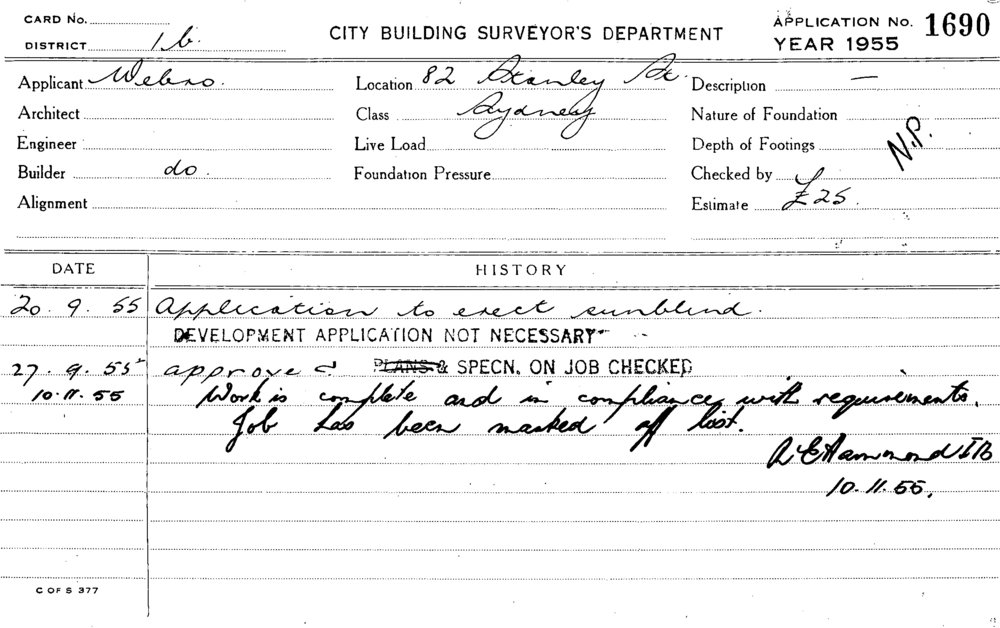 CARD No.
DISTRICT 1b.
CITY BUILDING SURVEYOR'S DEPARTMENT
APPLICATION No. 1690
YEAR 1955
Applicant Webro.
Location 82 Stanley St.
Description —
Architect
Class Sydney
Nature of Foundation
Engineer
Live Load
Depth of Footings
N.P.
Builder do.
Foundation Pressure
Checked by
Alignment
Estimate £25.
DATE HISTORY
20. 9. 55 Application to erect sunblind.
DEVELOPMENT APPLICATION NOT NECESSARY
27. 9. 55 approved PLANS & SPECN. ON JOB CHECKED
10.11.55 Work is complete and in compliance with requirements.
Job has been marked off list.
Hammond
10.11.55.
C OF S 377